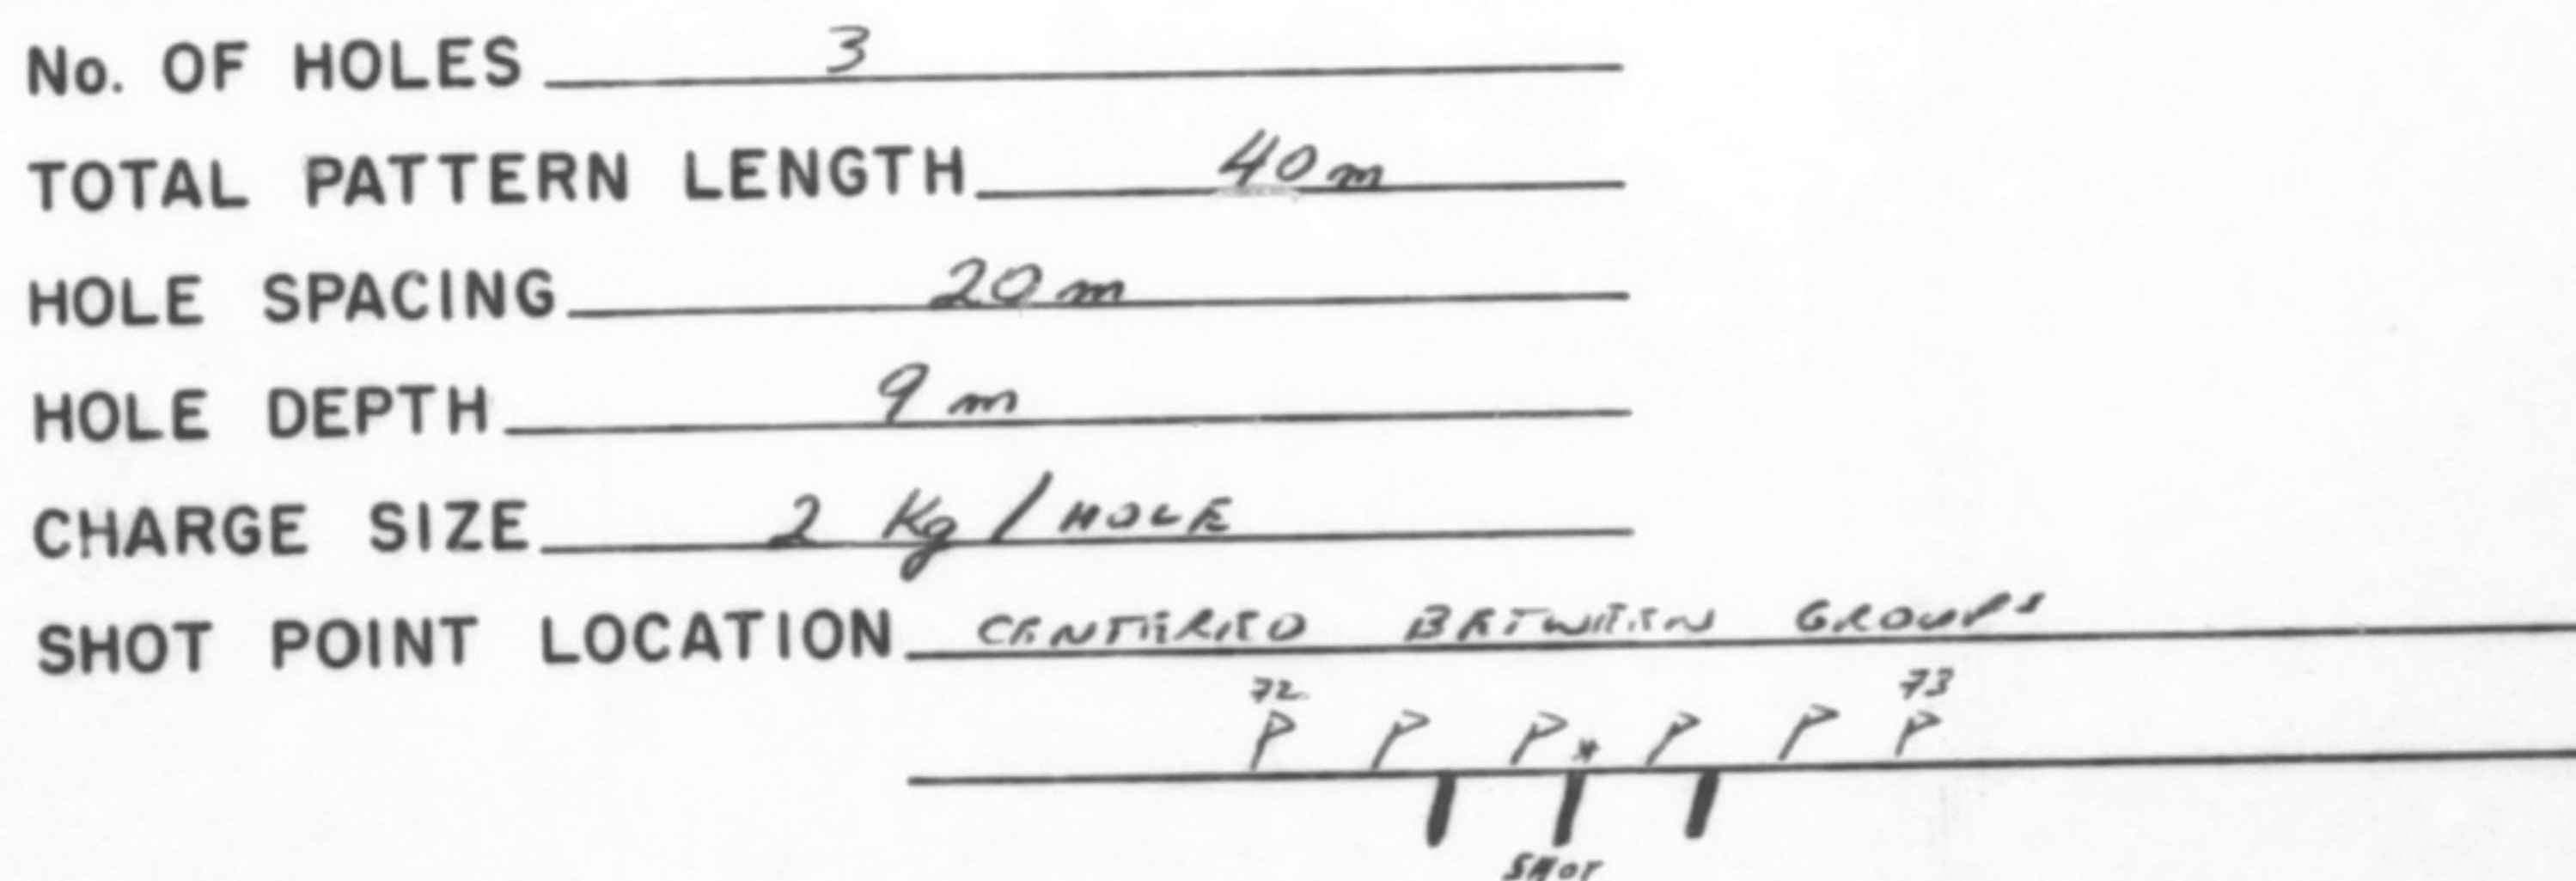 No. OF HOLES 3
TOTAL PATTERN LENGTH 40 m
HOLE SPACING 20 m
HOLE DEPTH 9 m
CHARGE SIZE 2 Kg / HOLE
SHOT POINT LOCATION CENTERED BETWEEN GROUPS
72 73
P P P * P P P
SHOT